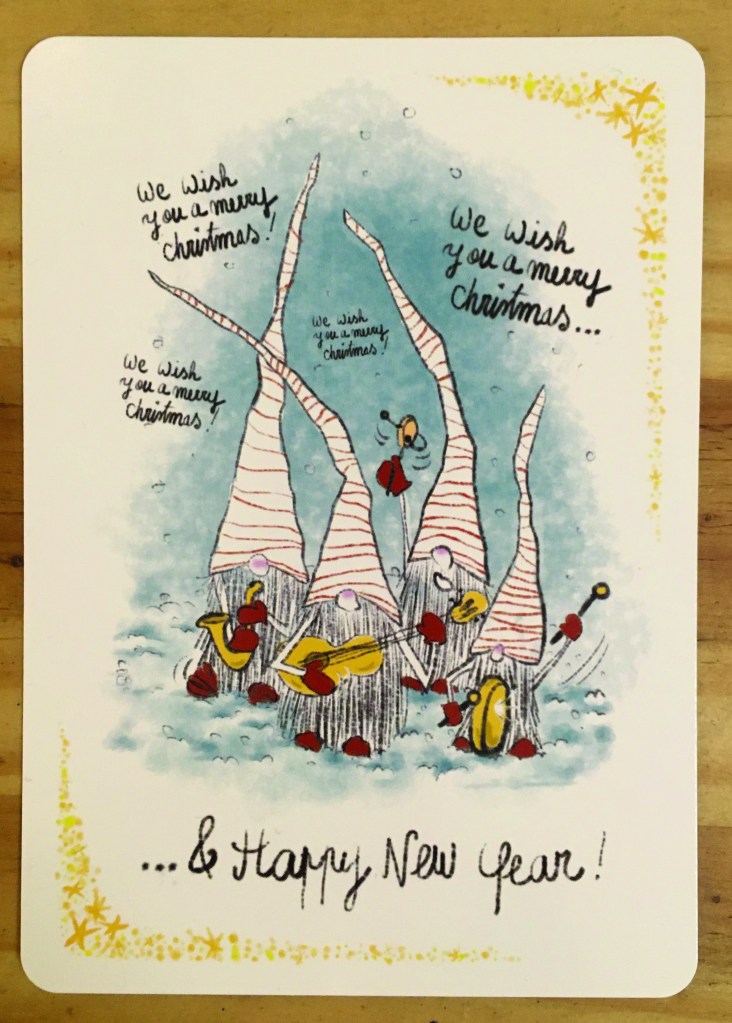 We Wish
you a merry
Christmas!
We Wish
you a merry
Christmas...
We Wish
you a merry
Christmas!
We Wish
you a merry
Christmas!
...& Happy New Year!